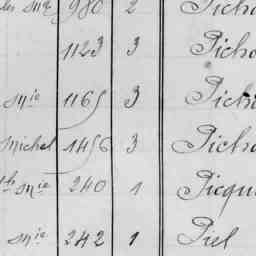 des Mie 980 2 Picho
1123 3 Picho
Mie 1165 3 Picho
Michel 1456 3 Picho
Ste Mie 240 1 Picqu
Mie 242 1 Piel